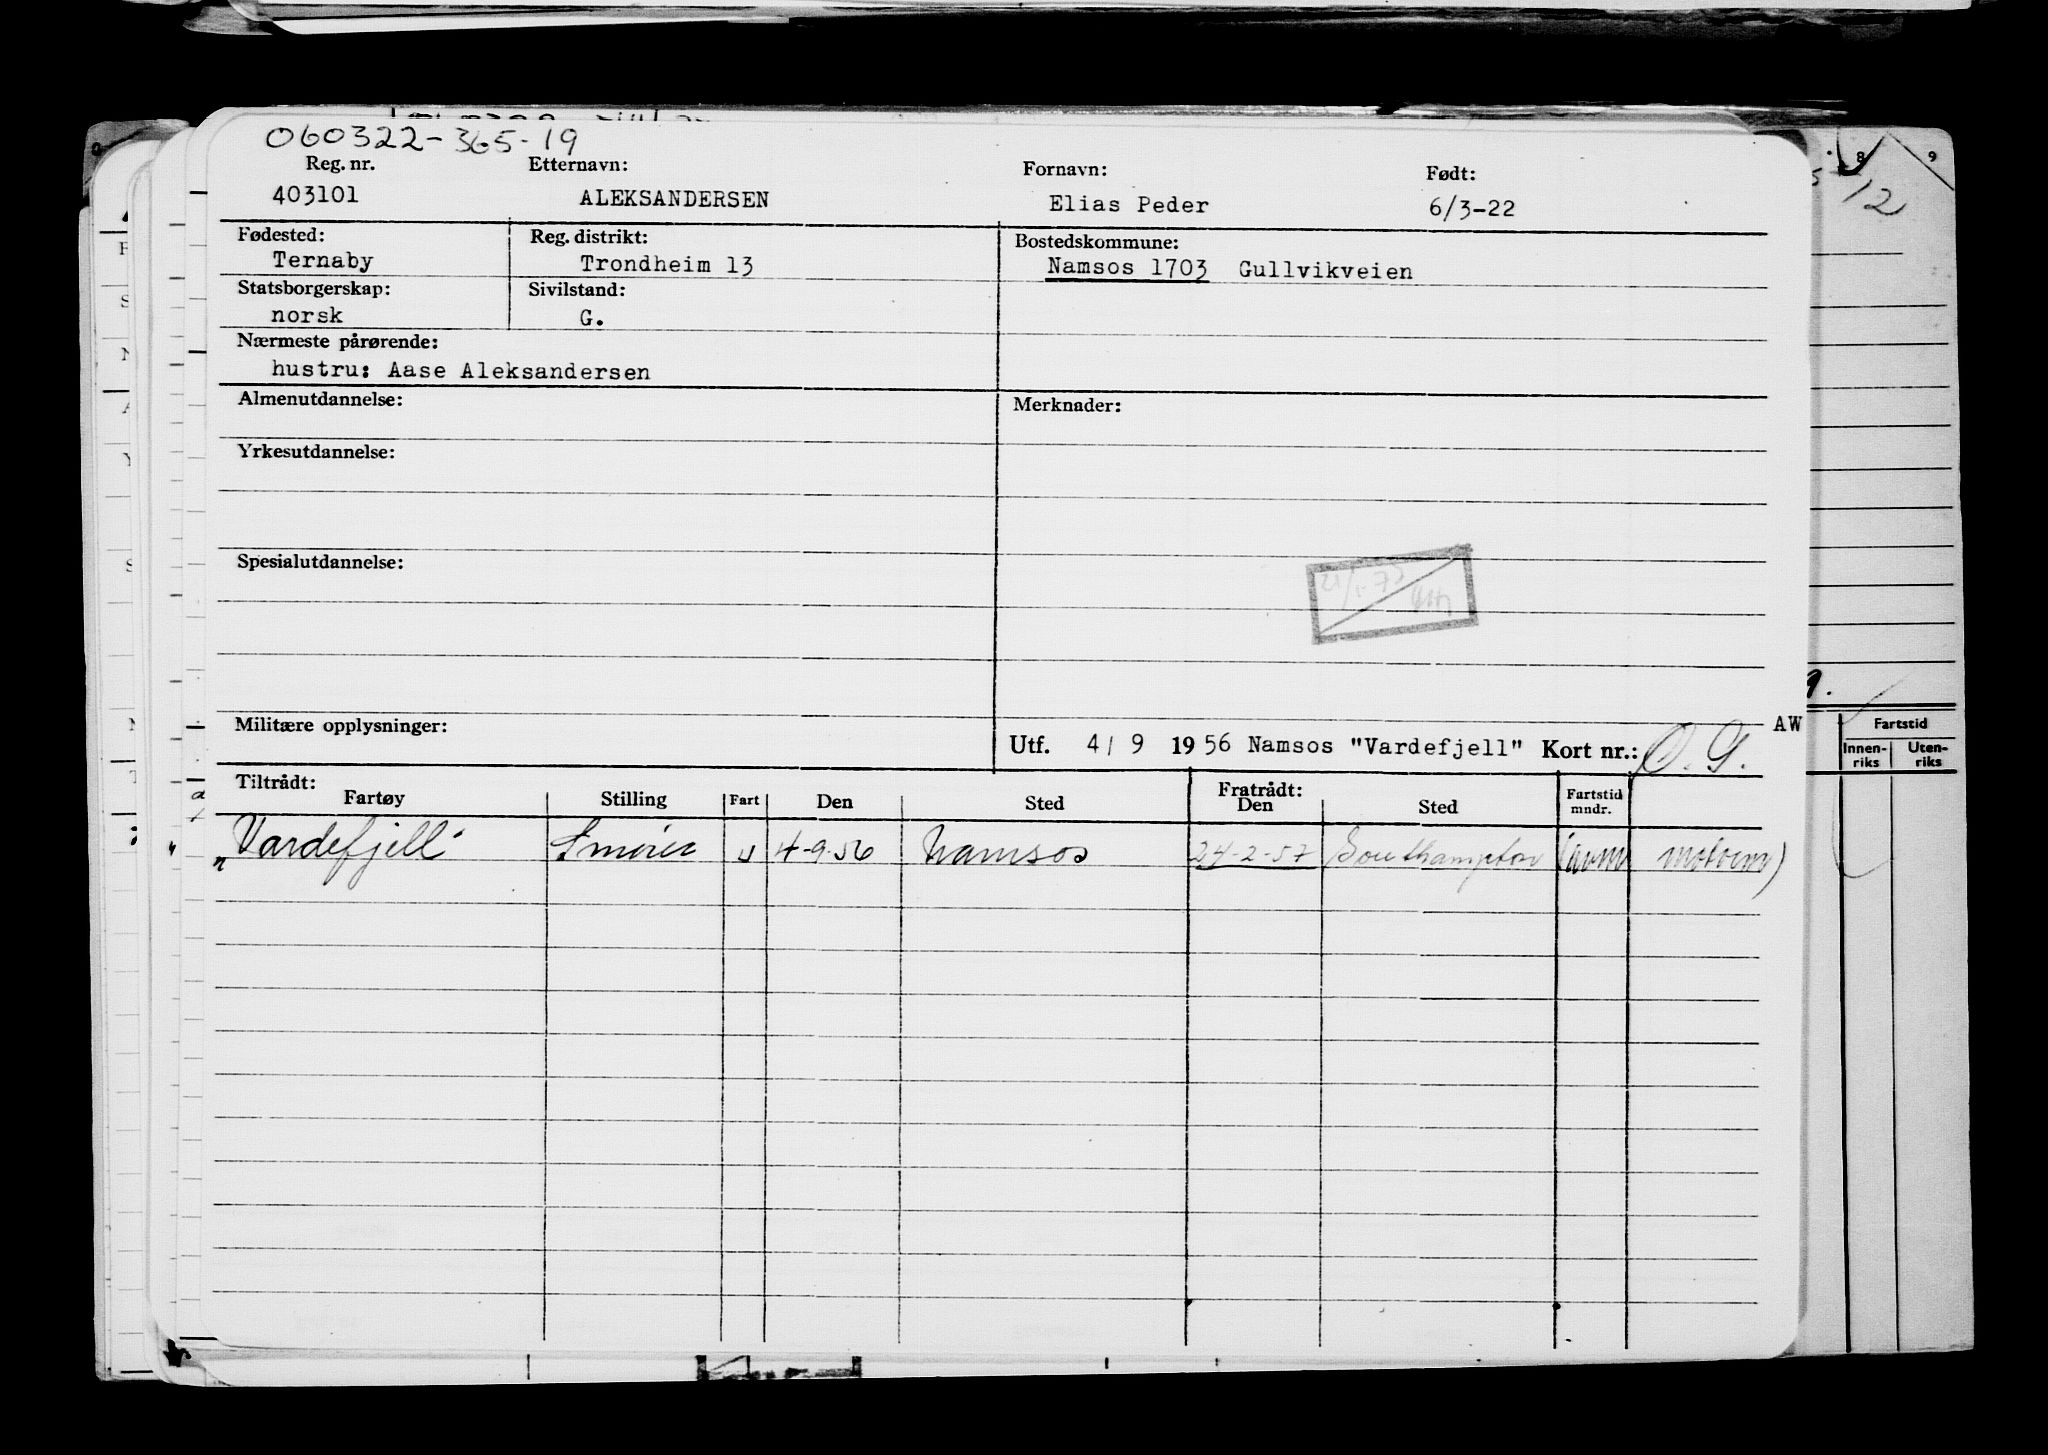 060322-365-19
Reg. nr. Etternavn: Fornavn: Født:
403101 ALEKSANDERSEN Elias Peder 6/3-22
Fødested: Reg. distrikt: Bostedskommune:
Ternaby Trondheim 13 Namsos 1703 Gullvikveien
Statsborgerskap: Sivilstand:
norsk G.
Nærmeste pårørende:
hustru: Aase Aleksandersen
Almenutdannelse: Merknader:
Yrkesutdannelse:
Spesialutdannelse:
Militære opplysninger: AW
Utf. 4/ 9 1956 Namsos "Vardefjell" Kort nr.: O. G.
Tiltrådt: Fratrådt:
Fartøy Stilling Fart Den Sted Den Sted Fartstid mndr.
"Vardefjell" Smører U 4-9-56 Namsos 24-2-57 Southampton
8 9
12
Fartstid
Innen-riks Uten-riks